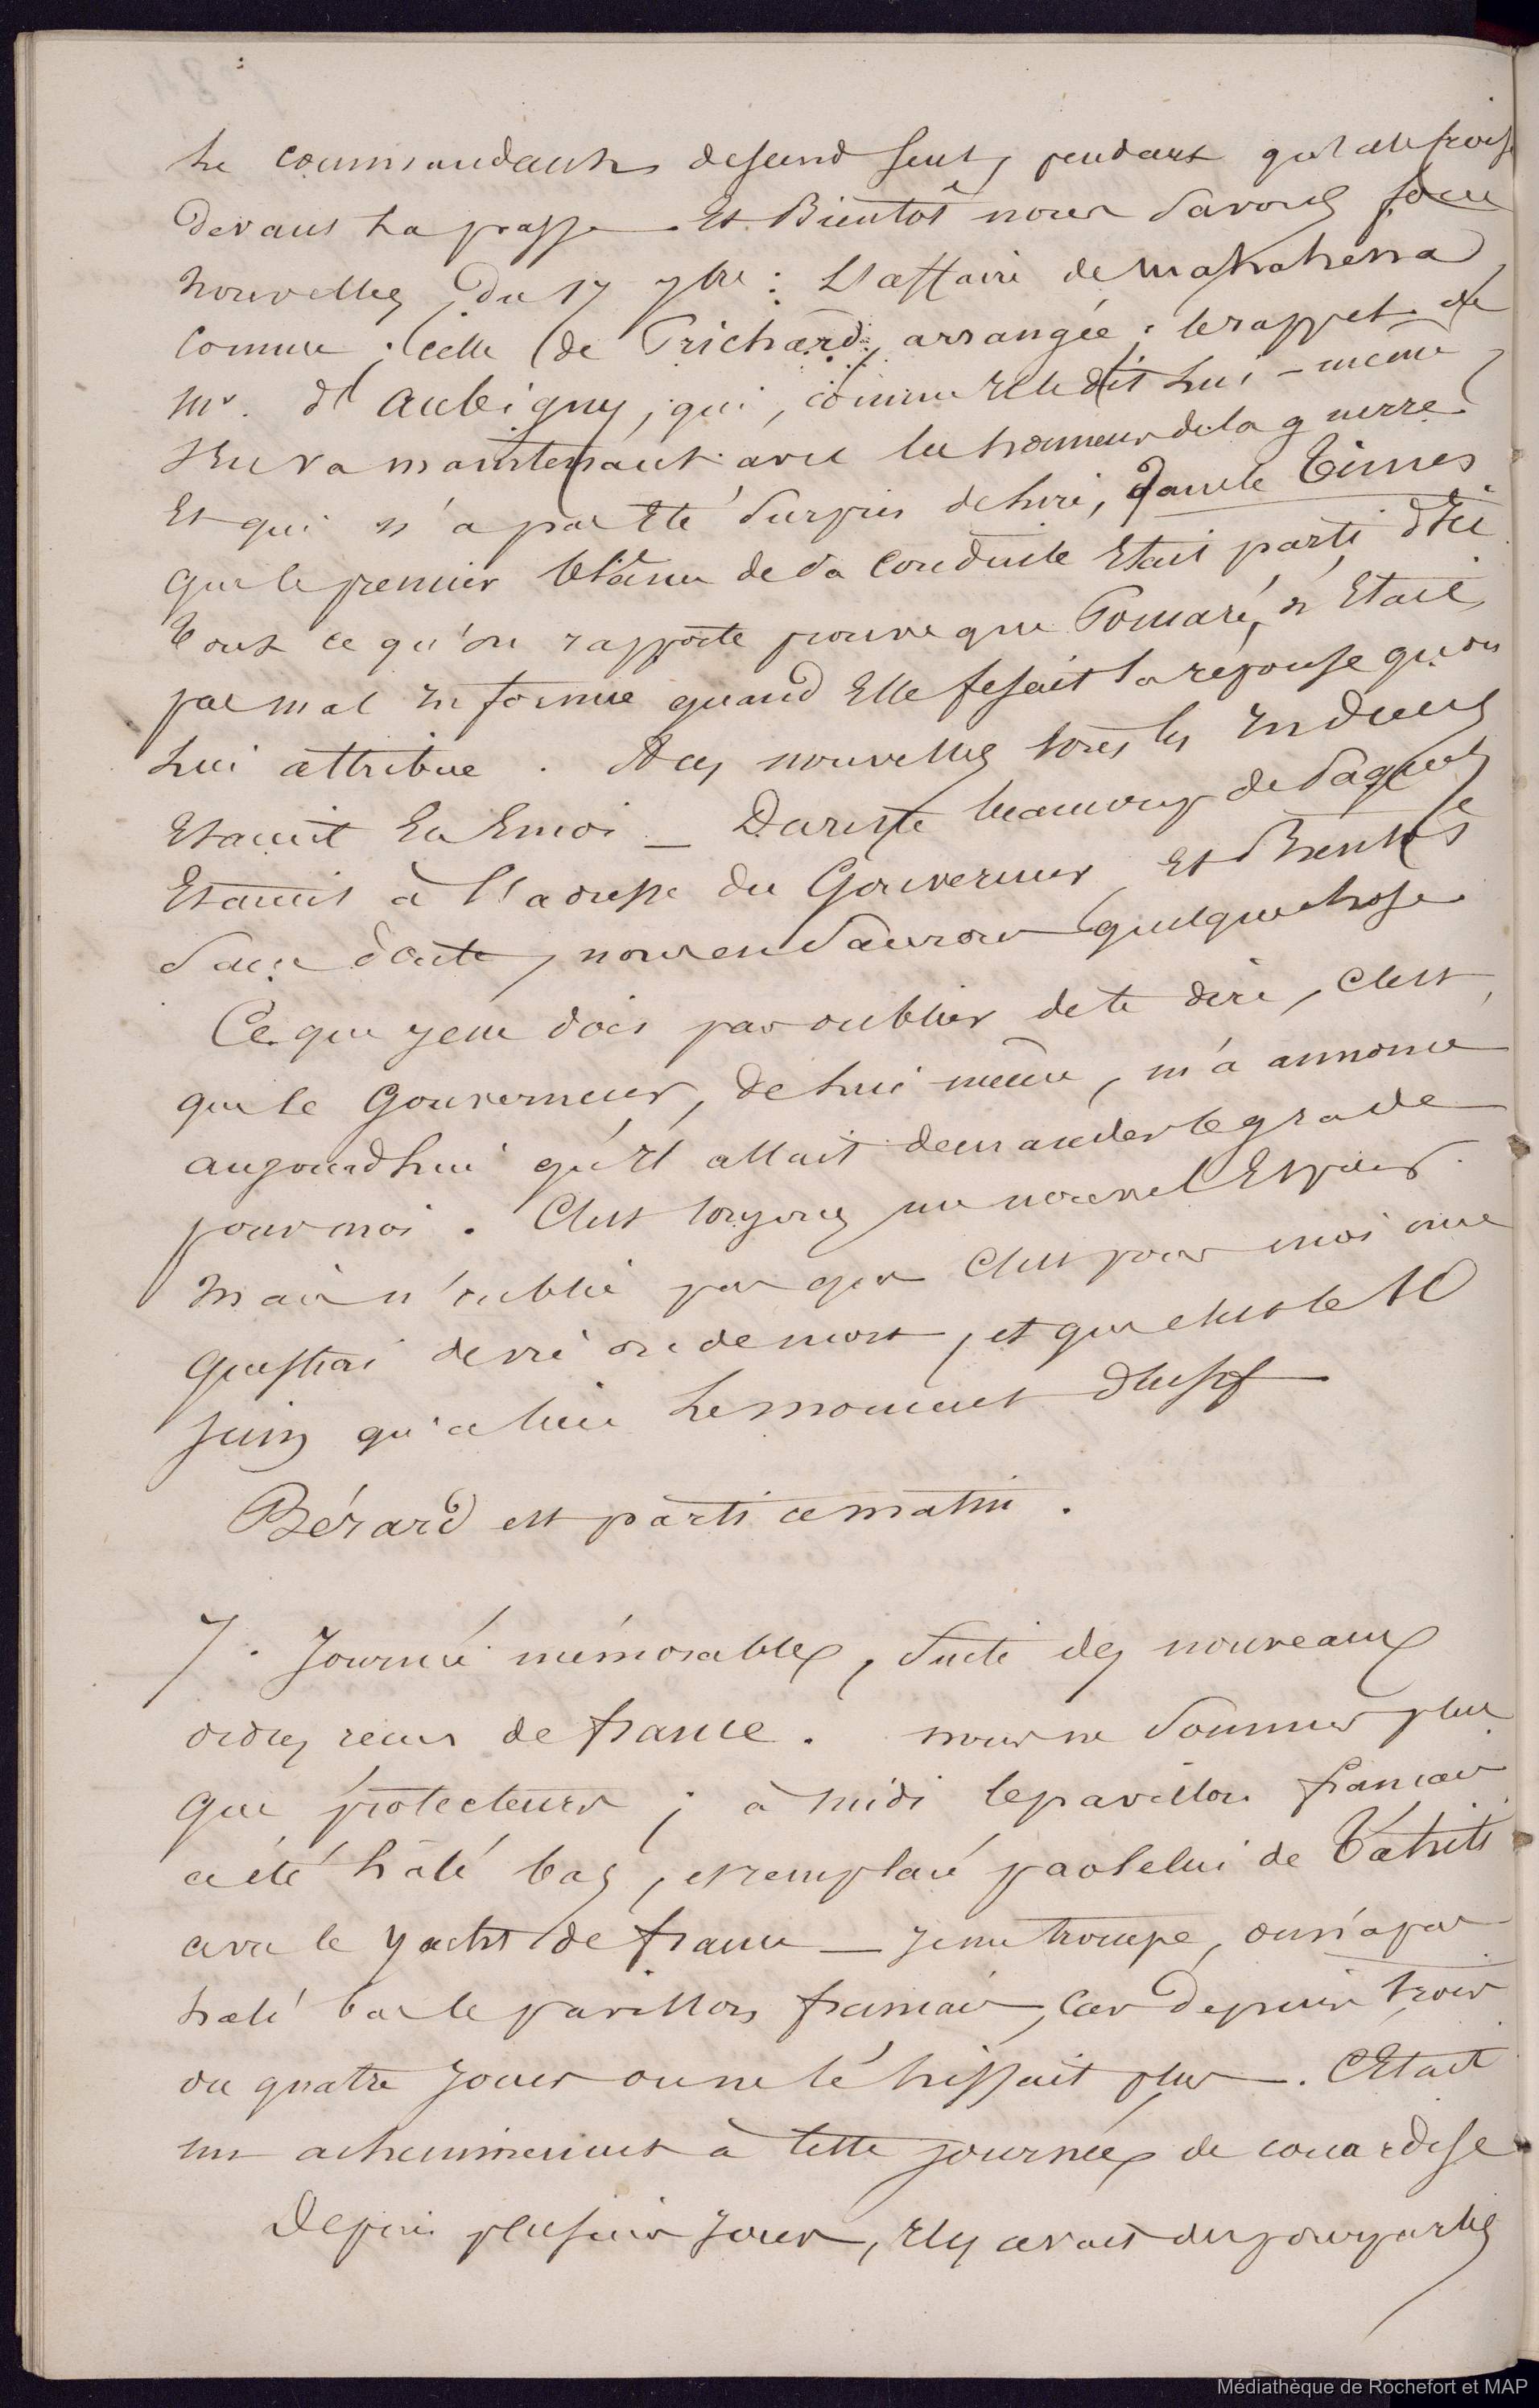 Le commandant descend seul, pendant qu'elle
devant la passe. Et Bientôt nous savons
nouvelles du 17 7bre : L'affaire de Mahahena
connue ; celle de Prichard, arrangée ; le rappel de
Mr. d'Aubigny, qui, comme Il le dit lui-même
s'En va maintenant avec les honneurs de la guerre
Et qui n'a pas Eté surpris de lire, dans le Times
que le premier blâme de sa conduite Etait parti d'Eu
Tout ce qu'on rapporte prouve que Pomaré, n'Etait
pas mal Informée quand Elle fesait la réponse qu'on
lui attribue. A ces nouvelles tous les Indiens
Etaient En Emoi _ Dariste beaucoup de paquets
Etaient à l'adresse du Gouverneur Et Bientôt
sans doute, nous en saurons quelque chose
Ce que je ne dois pas oublier de te dire, c'est
que le Gouverneur, de lui même, m'a annoncé
aujourd'hui qu'Il allait demander le grade
pour moi. C'est toujours un nouvel Espoir.
Mais n'oublie pas que c'est pour moi une
question de vie ou de mort, et que c'est le 10
juin qu'a lieu le moment décisif
Bérard est parti ce matin.
7. Journée mémorable, suite des nouveaux
ordres recus de france. nous ne sommes plus
que protecteurs ; à midi le pavillon francais
a été halé bas, et remplacé par celui de Tahiti
avec le yacht de france _ je me trompe, on n'a pas
halé bas le pavillon francais, car depuis trois
ou quatre jours on ne le hissait plus. C'Etait
un acheminement à cette journée de couardise
Depuis plusieurs jours, Il y avait des pourparlers
Médiathèque de Rochefort et MAP